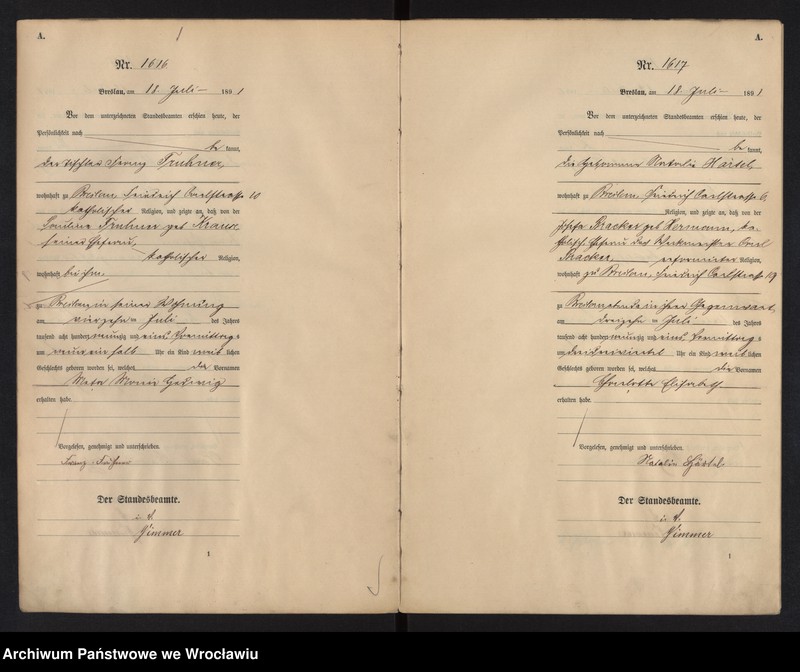 A.
Nr. 1616
Breslau, am 18. Juli 1891
Vor dem unterzeichneten Standesbeamten erschien heute, der
Persönlichkeit nach
be kannt,
der Tischler Franz Fruhner,
wohnhaft zu Breslau, Friedrich Carlstraße 10
katholischer Religion, und zeigte an, daß von der
Fruhner geb.
seiner Ehefrau,
katholischer Religion,
wohnhaft bei ihm
zu Breslau in seiner Wohnung
am vierzehn ten Juli des Jahres
tausend acht hundert neunzig und eins Vormittags
um neun ein halb Uhr ein Kind weib lichen
Geschlechts geboren worden sei, welches die Vornamen
Meta Maria Hedwig
erhalten habe.
Vorgelesen, genehmigt und unterschrieben.
Franz Fruhner
Der Standesbeamte.
i. V.
Zimmer
1
A.
Nr. 1617
Breslau, am 18. Juli 1891
Vor dem unterzeichneten Standesbeamten erschien heute, der
Persönlichkeit nach
be kannt,
die Hebamme Natalie Härtel,
wohnhaft zu Breslau, Friedrich Carlstraße 6,
Religion, und zeigte an, daß von der
Bracker geb. Hermann, ka-
tholisch, Ehefrau des Werkmeister Carl
Bracker, reformirter Religion,
wohnhaft zu Breslau, Friedrich Carlstraße
zu Breslau in ihrer Gegenwart
am dreizehn ten Juli des Jahres
tausend acht hundert neunzig und eins Vormittags
um dreiviertel Uhr ein Kind weib lichen
Geschlechts geboren worden sei, welches die Vornamen
Charlotte Elisabeth
erhalten habe.
Vorgelesen, genehmigt und unterschrieben.
Natalie Härtel
Der Standesbeamte.
i. V.
Zimmer
1
Archiwum Państwowe we Wrocławiu